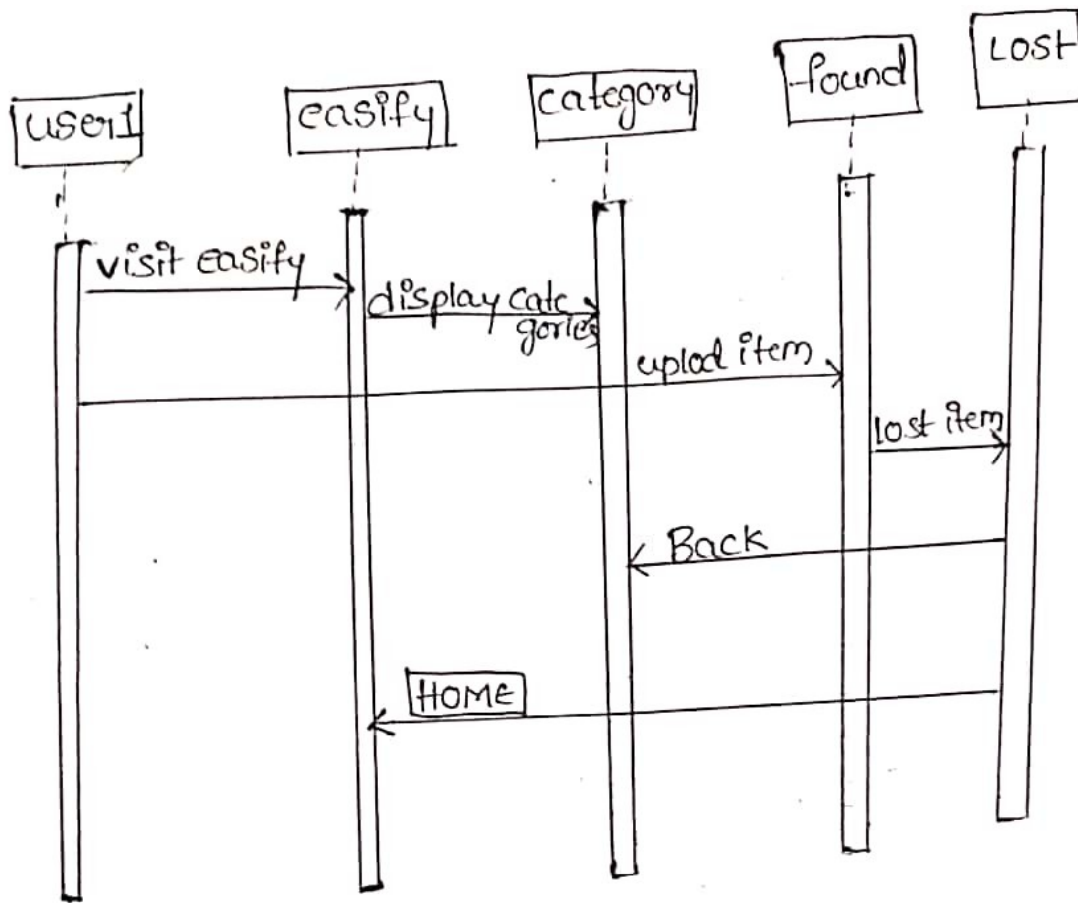 user1
easify
category
found
LOST
visit easify
display cate
gories
uplod item
lost item
Back
HOME